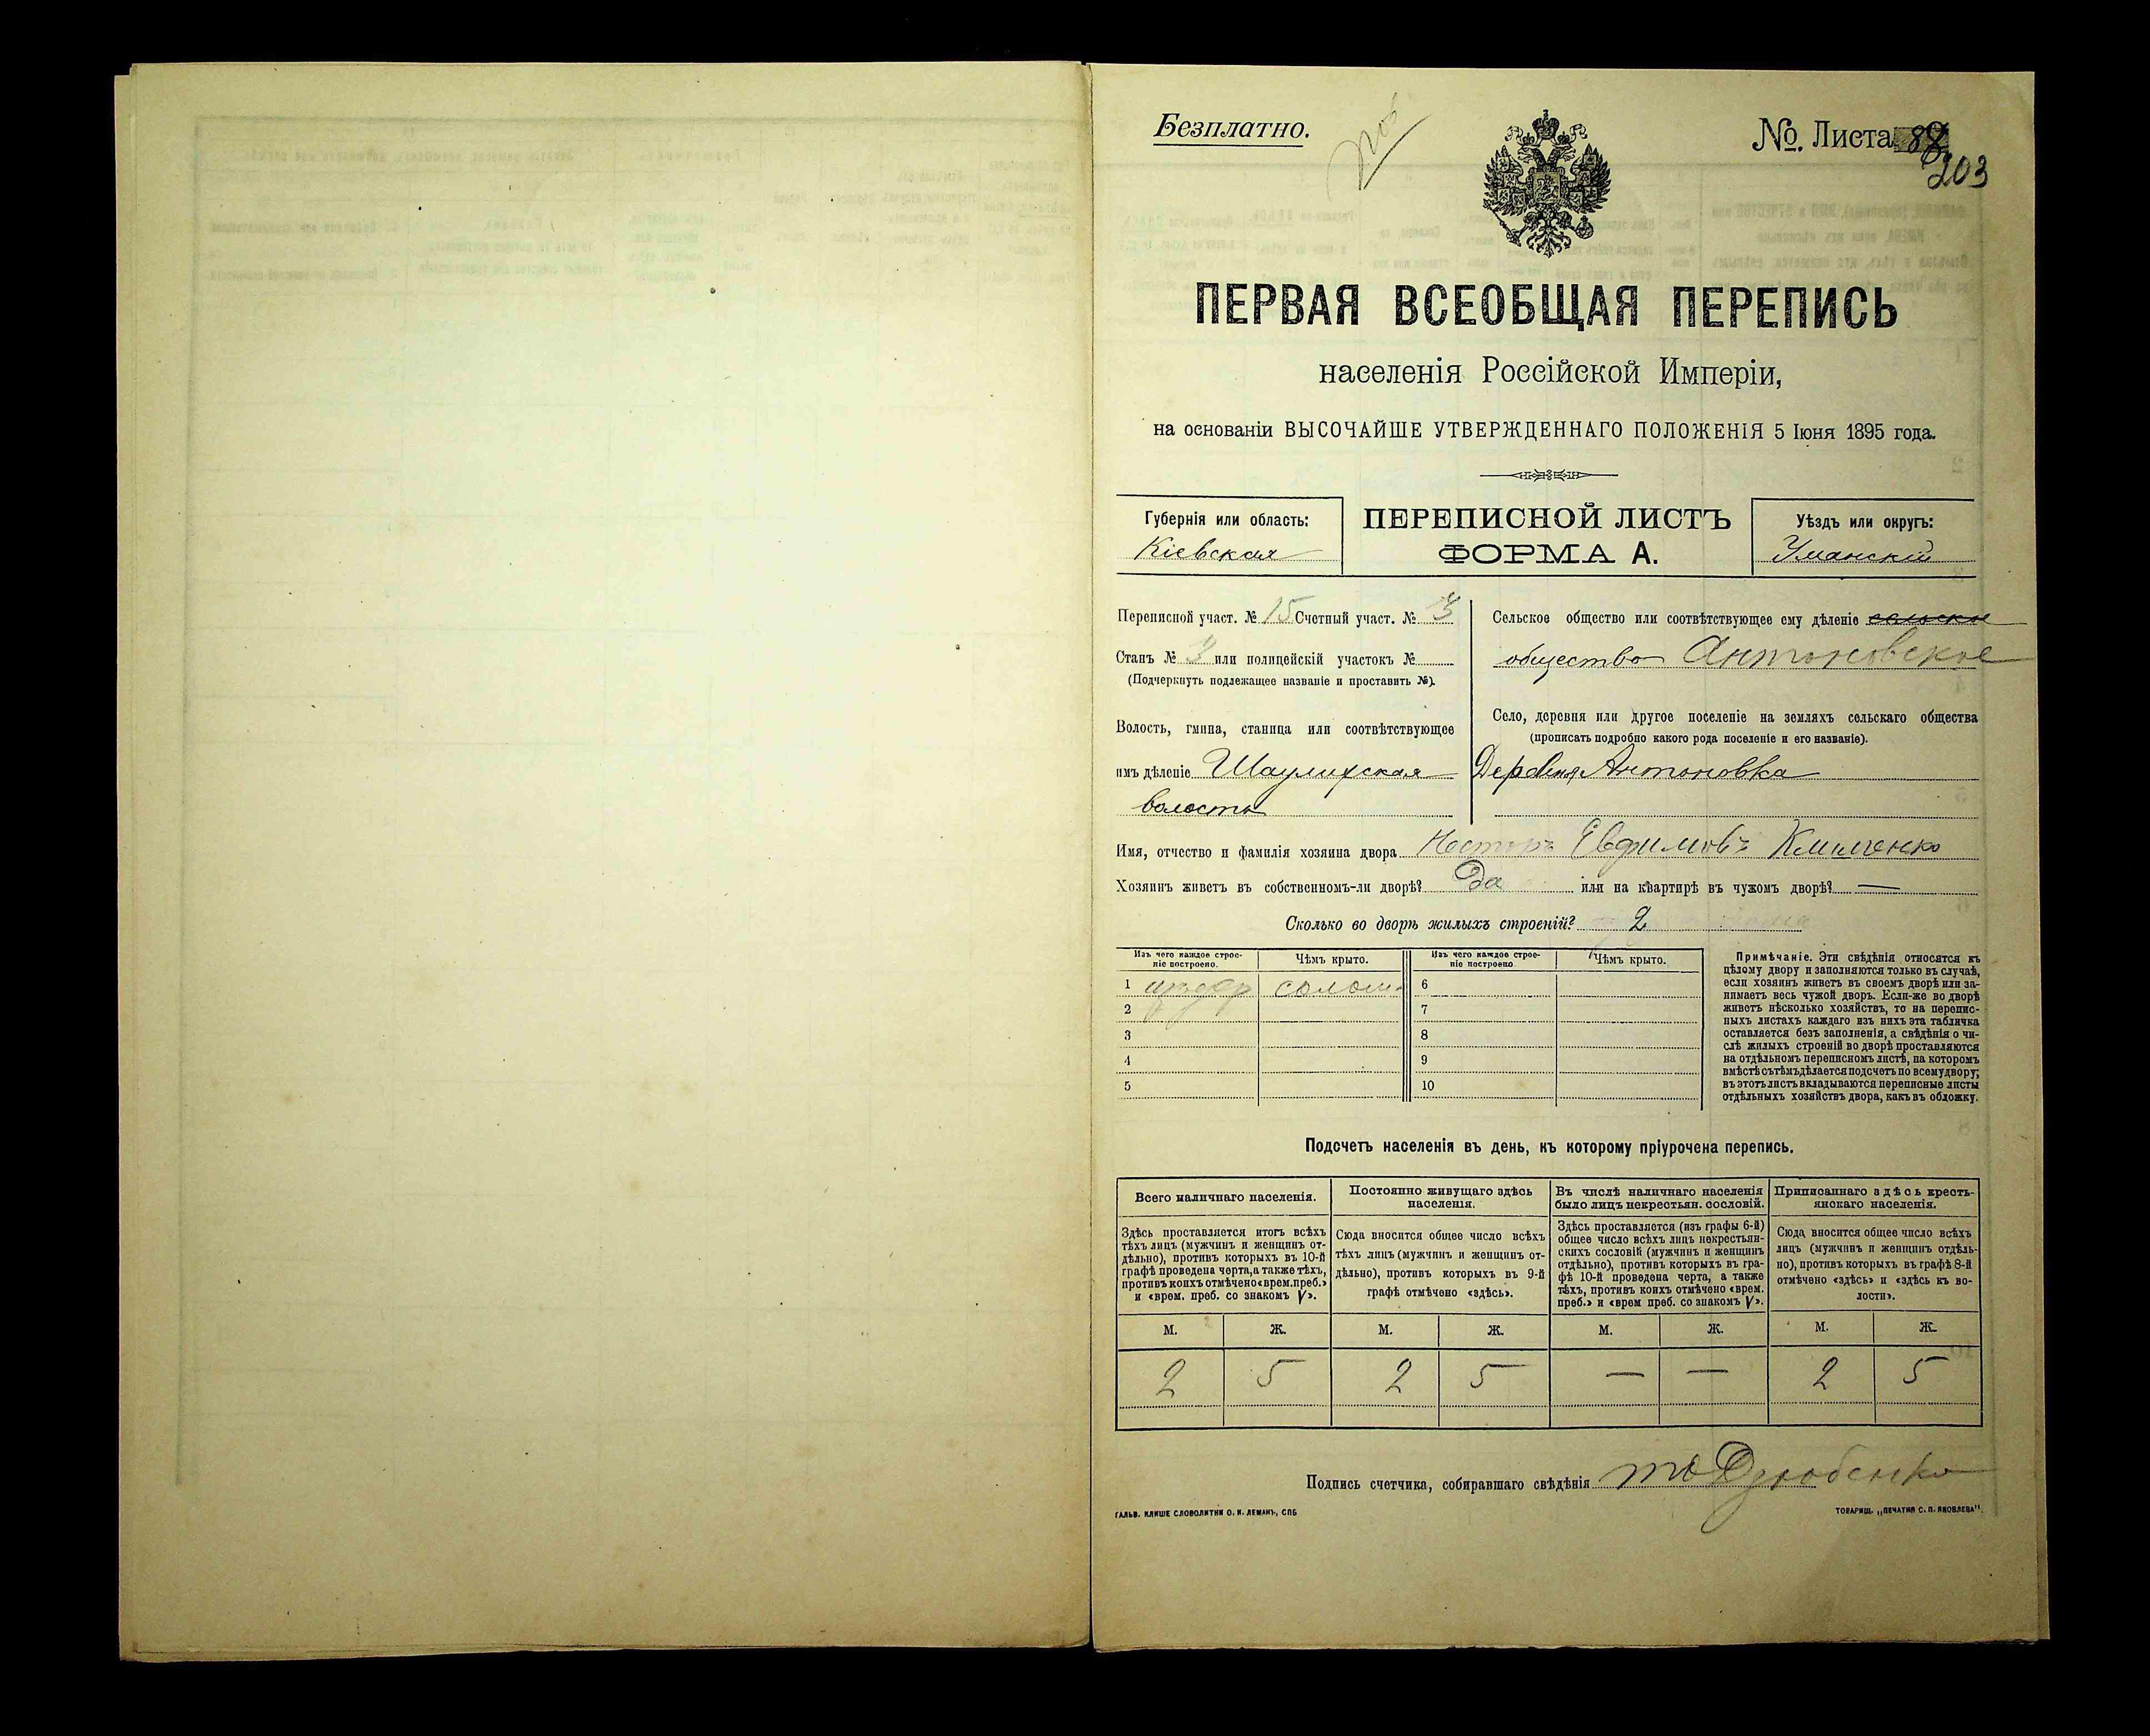 Безплатно.
№. Листа 88
203
ПЕРВАЯ ВСЕОБЩАЯ ПЕРЕПИСЬ
населенія Россійской Имперіи,
на основаніи ВЫСОЧАЙШЕ УТВЕРЖДЕННАГО ПОЛОЖЕНІЯ 5 Іюня 1895 года.
Губернія или область:
Кіевская
ПЕРЕПИСНОЙ ЛИСТЪ
ФОРМА А.
Уѣздъ или округъ:
Уманскій
Переписной участ. № 15 Счетный участ. № 3
Станъ № 3 или полицейскій участокъ №
(Подчеркнуть подлежащее названіе и проставить №).
Волость, гмина, станица или соотвѣтствующее
имъ дѣленіе Шаулихская
волость
Сельское общество или соотвѣтствующее ему дѣленіе сельское
общество Антоновское
Село, деревня или другое поселеніе на земляхъ сельскаго общества
(прописать подробно какого рода поселеніе и его названіе).
Деревня Антоновка
Имя, отчество и фамилія хозяина двора Несторъ Евфимовъ Климченко
Хозяинъ живетъ въ собственномъ-ли дворѣ? Да или на квартирѣ въ чужомъ дворѣ? —
Сколько во дворѣ жилыхъ строеній? 2
Изъ чего каждое строе-
ніе построено.
Чѣмъ крыто.
Изъ чего каждое строе-
ніе построено
Чѣмъ крыто.
1 солом. 6
2 7
3 8
4 9
5 10
Примѣчаніе. Эти свѣдѣнія относятся къ
цѣлому двору и заполняются только въ случаѣ,
если хозяинъ живетъ въ своемъ дворѣ или за-
нимаетъ весь чужой дворъ. Если-же во дворѣ
живетъ нѣсколько хозяйствъ, то на перепис-
ныхъ листахъ каждаго изъ нихъ эта табличка
оставляется безъ заполненія, а свѣдѣнія о чи-
слѣ жилыхъ строеній во дворѣ проставляются
на отдѣльномъ переписномъ листѣ, на которомъ
вмѣстѣ съ тѣмъ дѣлается подсчетъ по всему двору;
въ этотъ листъ вкладываются переписные листы
отдѣльныхъ хозяйствъ двора, какъ въ обложку.
Подсчетъ населенія въ день, къ которому пріурочена перепись.
Всего наличнаго населенія.
Здѣсь проставляется итогъ всѣхъ
тѣхъ лицъ (мужчинъ и женщинъ от-
дѣльно), противъ которыхъ въ 10-й
графѣ проведена черта, а также тѣхъ,
противъ коихъ отмѣчено «врем. преб.»
и «врем. преб. со знакомъ V».
Постоянно живущаго здѣсь
населенія.
Сюда вносится общее число всѣхъ
тѣхъ лицъ (мужчинъ и женщинъ от-
дѣльно), противъ которыхъ въ 9-й
графѣ отмѣчено «здѣсь».
Въ числѣ наличнаго населенія
было лицъ некрестьян. сословій.
Здѣсь проставляется (изъ графы 6-й)
общее число всѣхъ лицъ некрестьян-
скихъ сословій (мужчинъ и женщинъ
отдѣльно), противъ которыхъ въ гра-
фѣ 10-й проведена черта, а также
тѣхъ, противъ коихъ отмѣчено «врем.
преб.» и «врем преб. со знакомъ V».
Приписаннаго здѣсь кресть-
янскаго населенія.
Сюда вносится общее число всѣхъ
лицъ (мужчинъ и женщинъ отдѣль-
но), противъ которыхъ въ графѣ 8-й
отмѣчено «здѣсь» и «здѣсь къ во-
лости».
М. Ж. М. Ж. М. Ж. М. Ж.
2 5 2 5 — — 2 5
Подпись счетчика, собиравшаго свѣдѣнія Дзюбенко
ГАЛЬВ. КЛИШЕ СЛОВОЛИТНИ О. И. ЛЕМАНЪ, СПБ
ТОВАРИЩ. „ПЕЧАТНЯ С. П. ЯКОВЛЕВА".